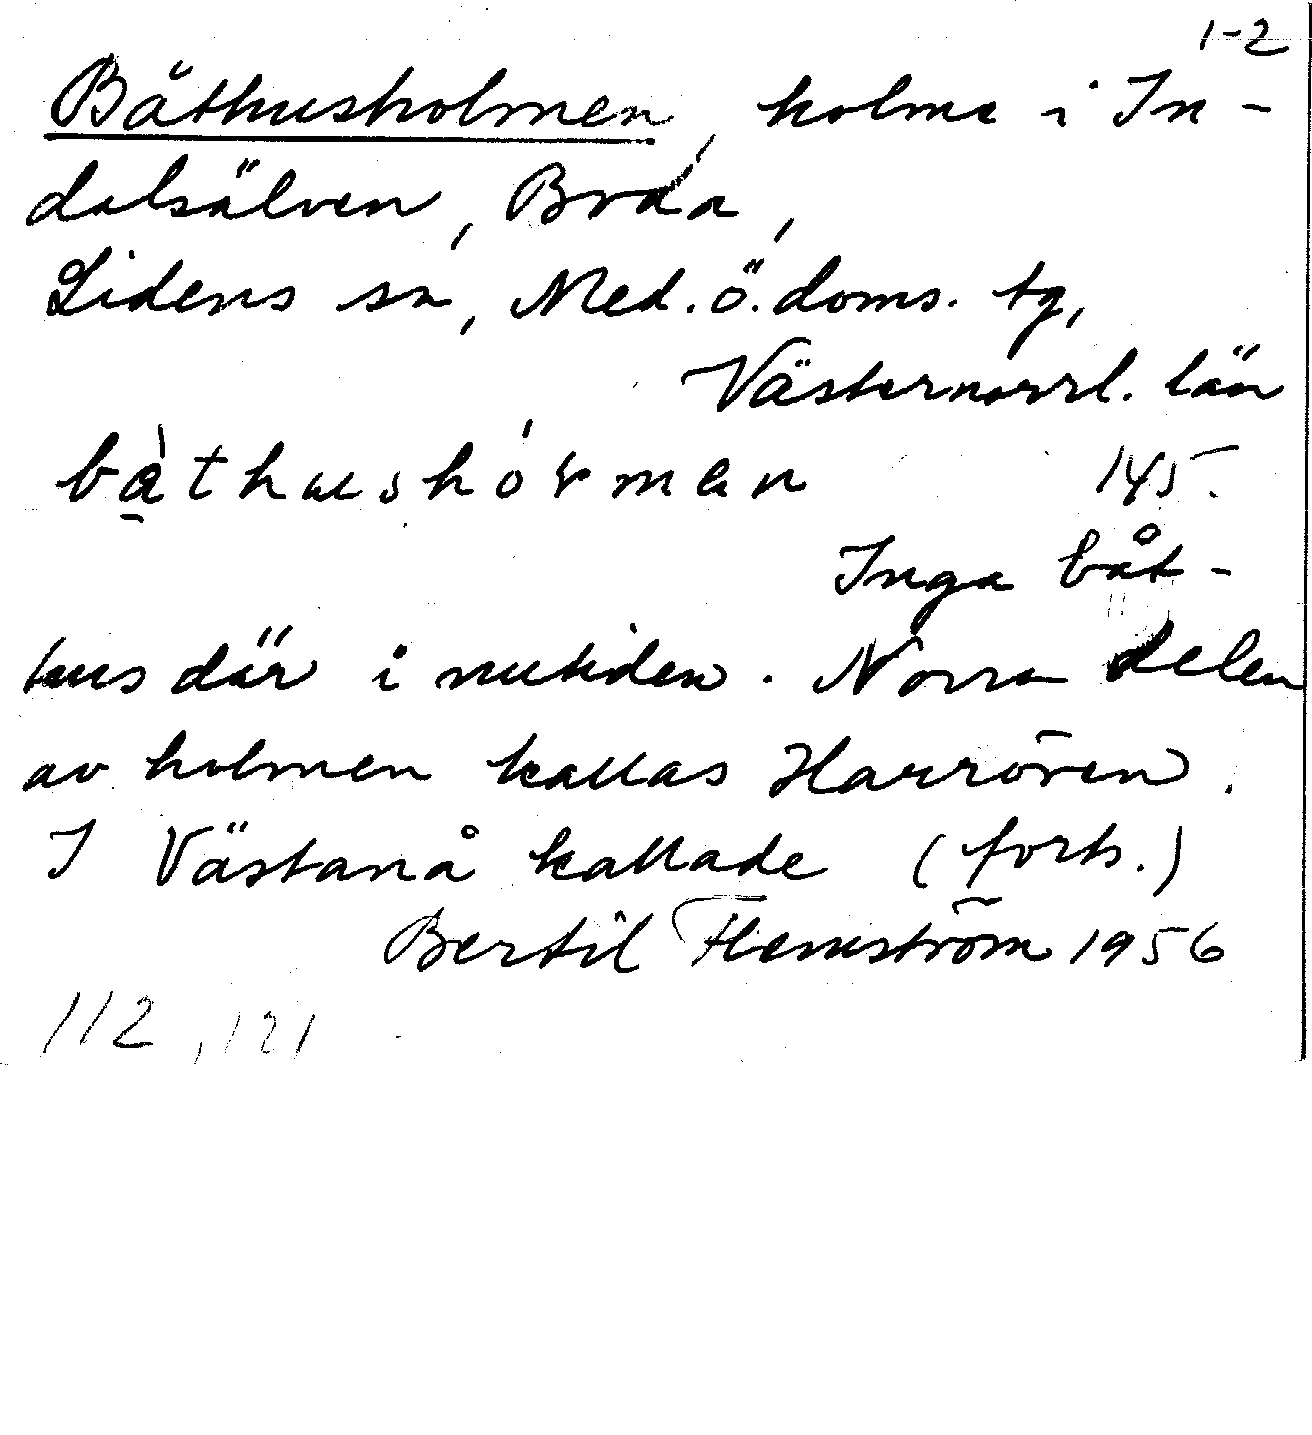 1-2
Båthusholmen, holme i In-
dalsälven, Boda,
Lidens sn, Med. ö. doms. tg,
Västernorrl. län
145.
Inga båt-
hus där i nutiden. Norra delen
av holmen kallas Harrören.
I Västanå kallade (forts.)
Bertil Flemström 1956
112, 121